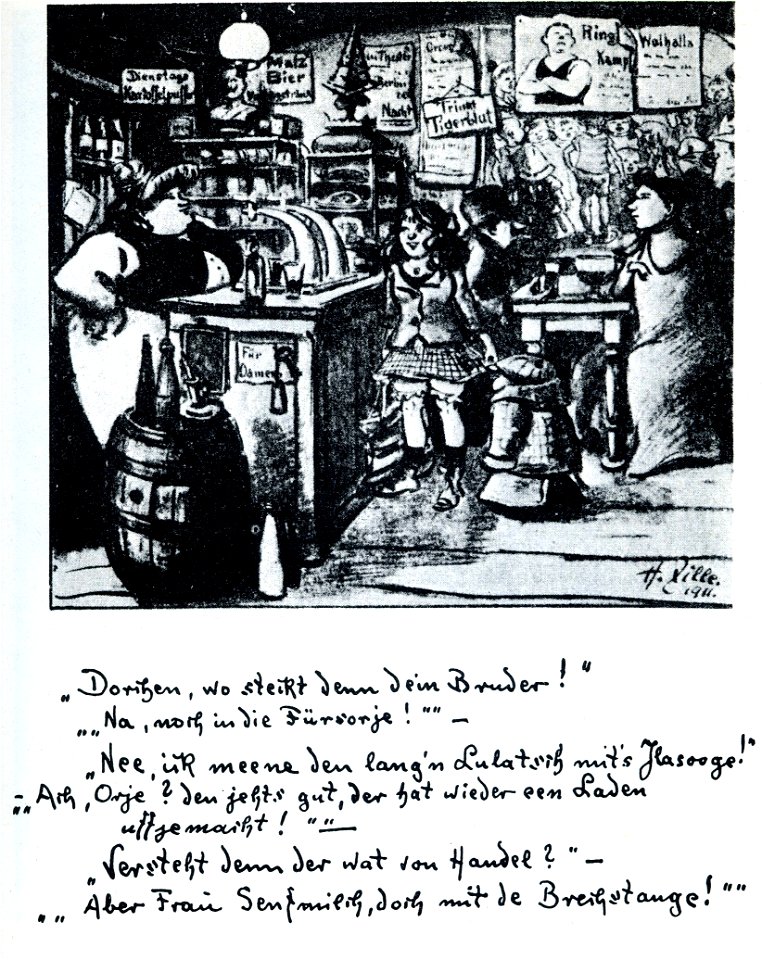 Dienstags
Kartoffelpuffer
Malz
Bier
Berlin
Nacht
Trinkt
Tigerblut
Ring
Kampf
Walhalla
Für
Damen
H. Zille.
1911.
„Dorchen, wo steckt denn dein Bruder!“
„„Na, noch in die Fürsorje!““ —
„Nee, ick meene den lang'n Lulatsch mit's Jlasooge!“
— „„Ach, Orje? den jehts gut, der hat wieder een Laden
uffjemacht!““ —
„Versteht denn der wat von Handel?“ —
„„Aber Frau Senfmilch, doch mit de Brechstange!““